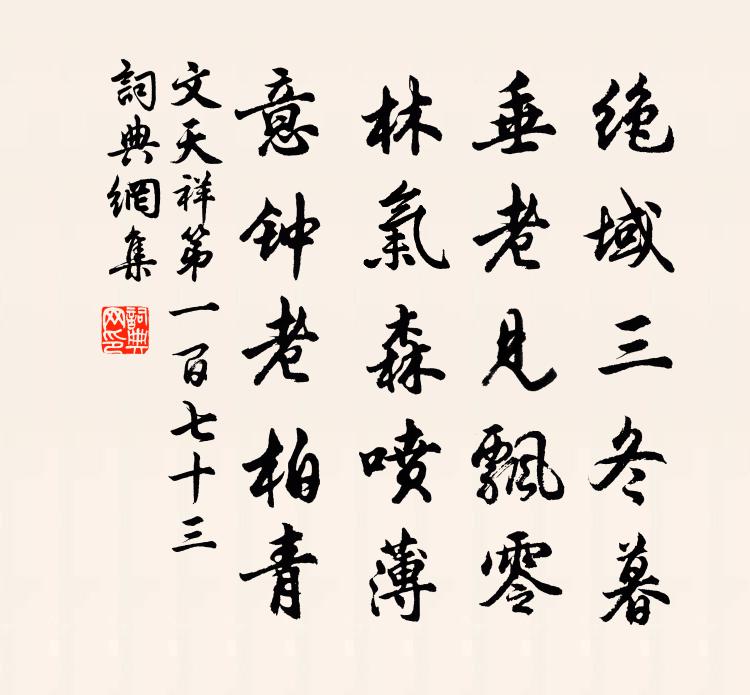 绝域三冬暮
垂老见飘零
林氣森噴薄
意钟老柏青
文天祥第一百七十三
詞典網集
詞典网印